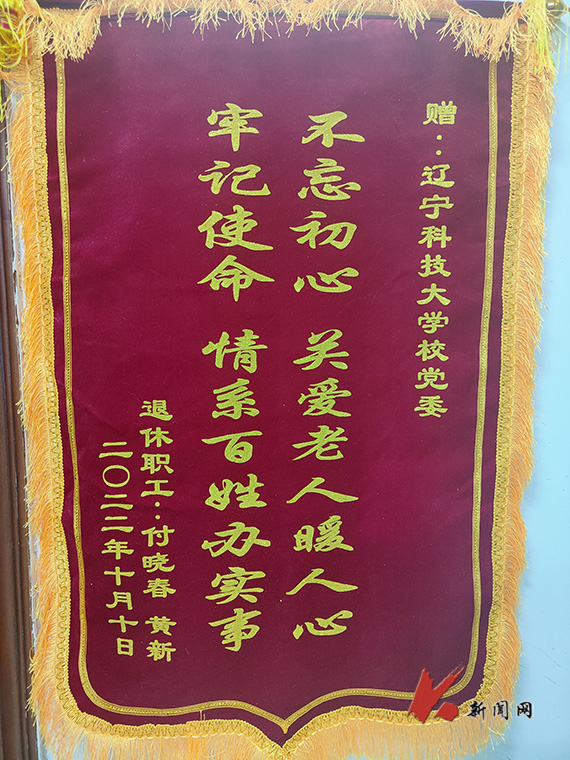 赠：辽宁科技大学校党委
不忘初心 关爱老人暖人心
牢记使命 情系百姓办实事
退休职工：付晓春 黄新
二〇二二年十月十日
新闻网